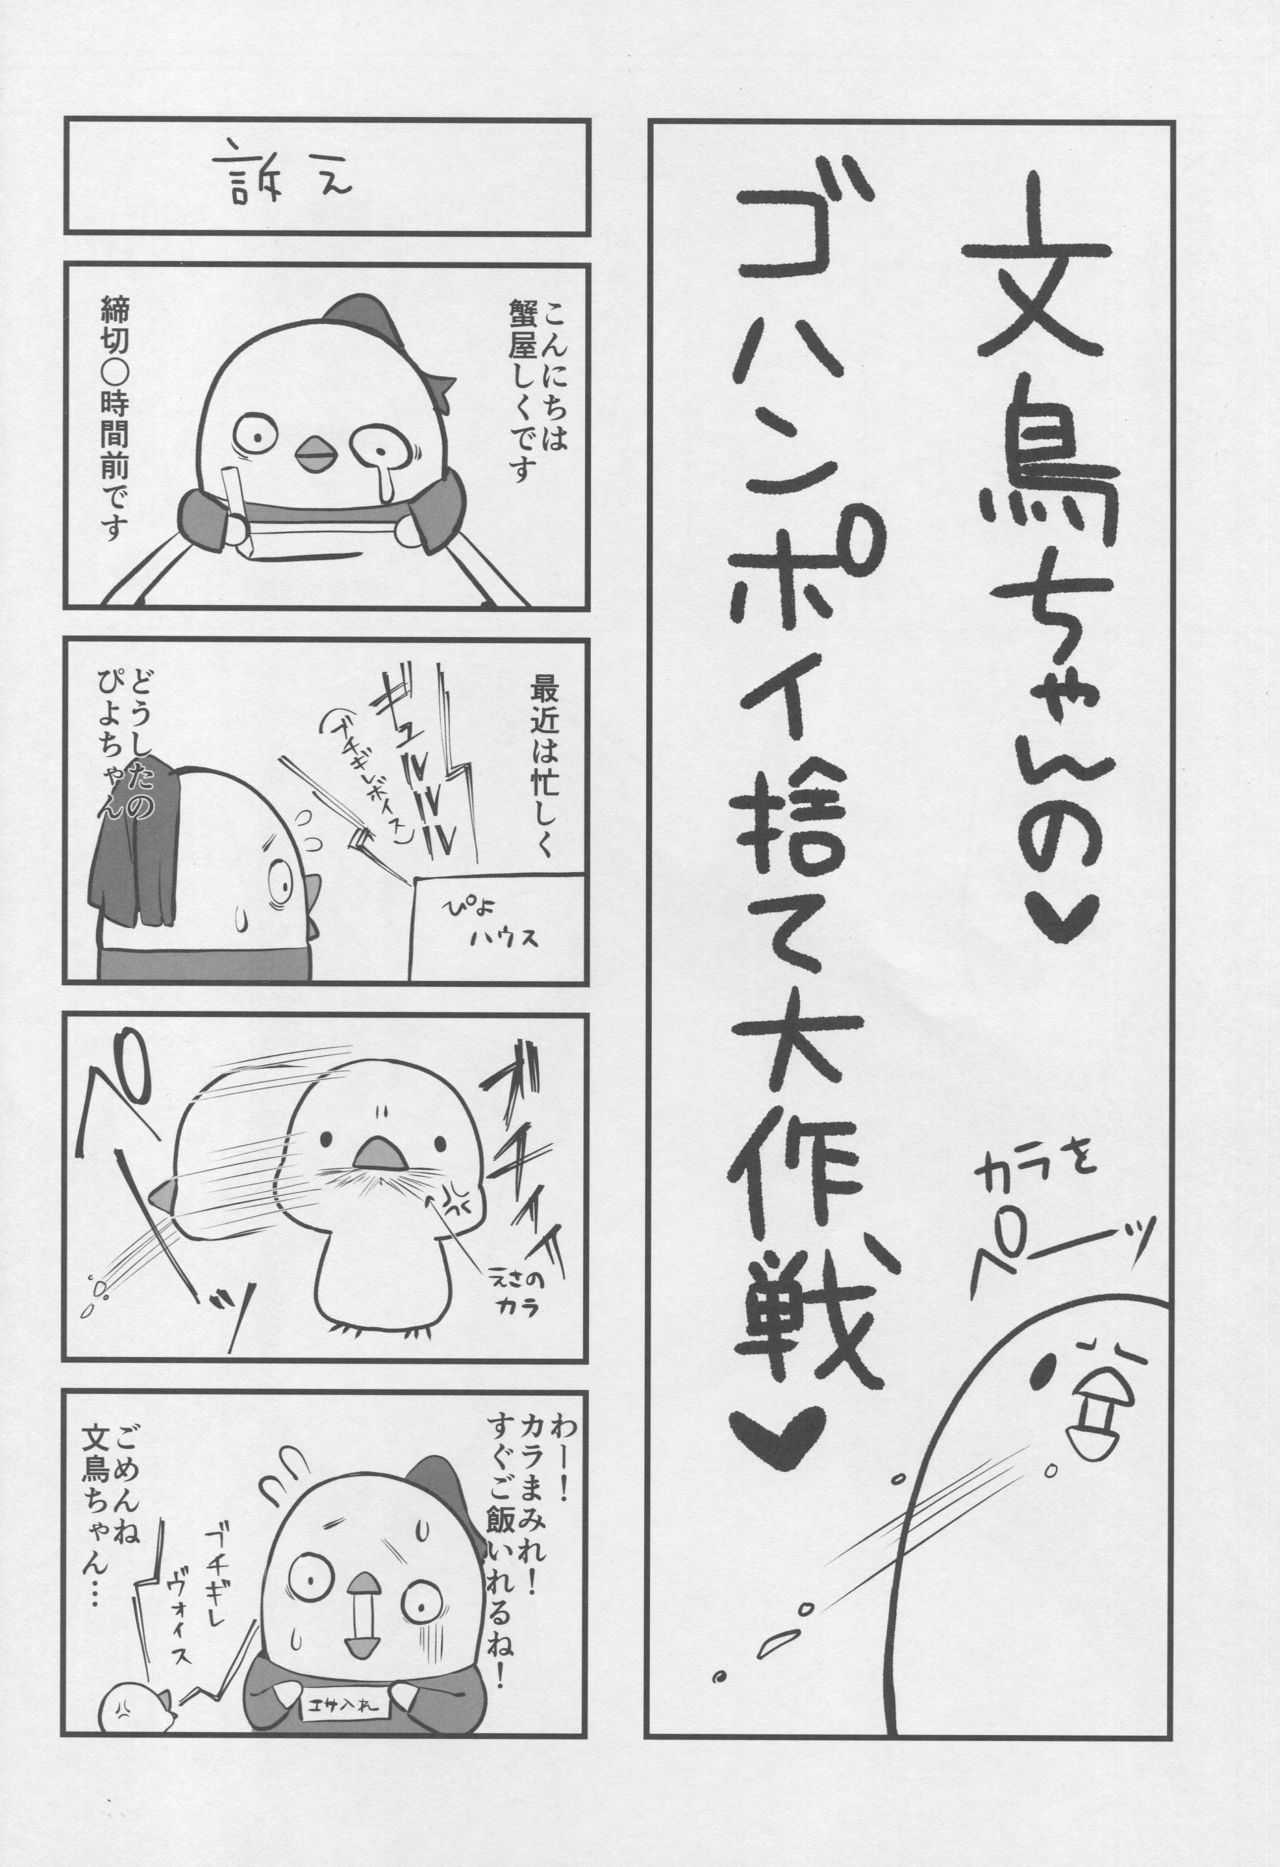 文鳥ちゃんの♥
ゴハンポイ捨て大作戦♥
カラを
ペーッ
訴え
こんにちは
蟹屋しくです
締切〇時間前です
最近は忙しく
ギュルルルル
(ブチギレボイス)
ぴよ
ハウス
どうしたの
ぴよちゃん
ブチィィィ
えさの
カラ
ペッ
わー!
カラまみれ!
すぐご飯いれるね!
エサ入れ
ブチギレ
ヴォイス
ごめんね
文鳥ちゃん…